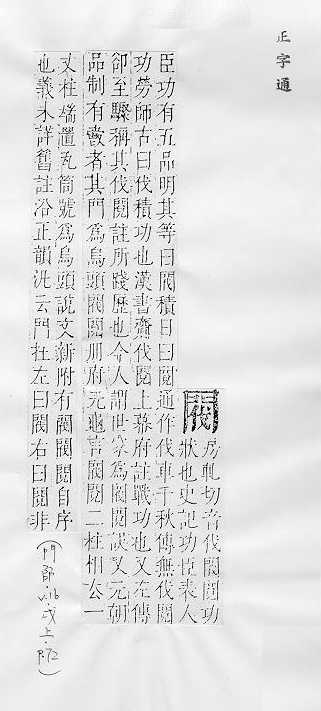 正字通
閥
房軋切音伐閥閱功
狀也史記功臣表人
臣功有五品明其等曰閥積日曰閱通作伐車千秋傳無伐閱
功勞師古曰伐積功也漢書齎伐閱上幕府註職功也又左傳
卻至驟稱其伐閱註所踐歷也今人謂世家為閥閱誤又元朝
品制有爵者其門為烏頭閥閱冊府元龜言閥閱二柱相公一
丈柱端置瓦筒號為烏頭說文新附有閥閥閱自序
也義未詳舊註沿正韻洗云門在左曰閥右曰閱非
(門部.v.16.戌上.P.72)